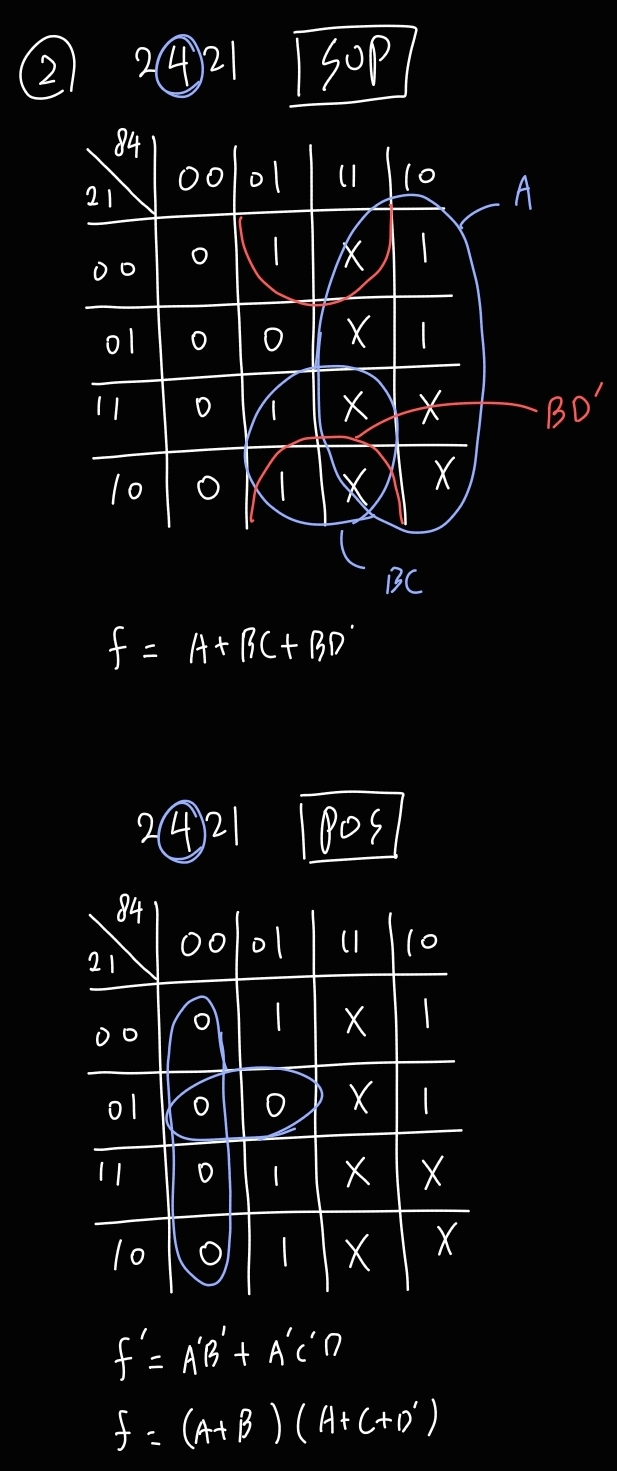 ② 2421 SOP
84
21
00 01 11 10
A
00 0 1 X 1
01 0 0 X 1
11 0 1 X X
BD'
10 0 1 X X
BC
f = A+BC+BD'
2421 POS
84
21
00 01 11 10
00 0 1 X 1
01 0 0 X 1
11 0 1 X X
10 0 1 X X
f' = A'B' + A'C'D
f = (A+B)(A+C+D')